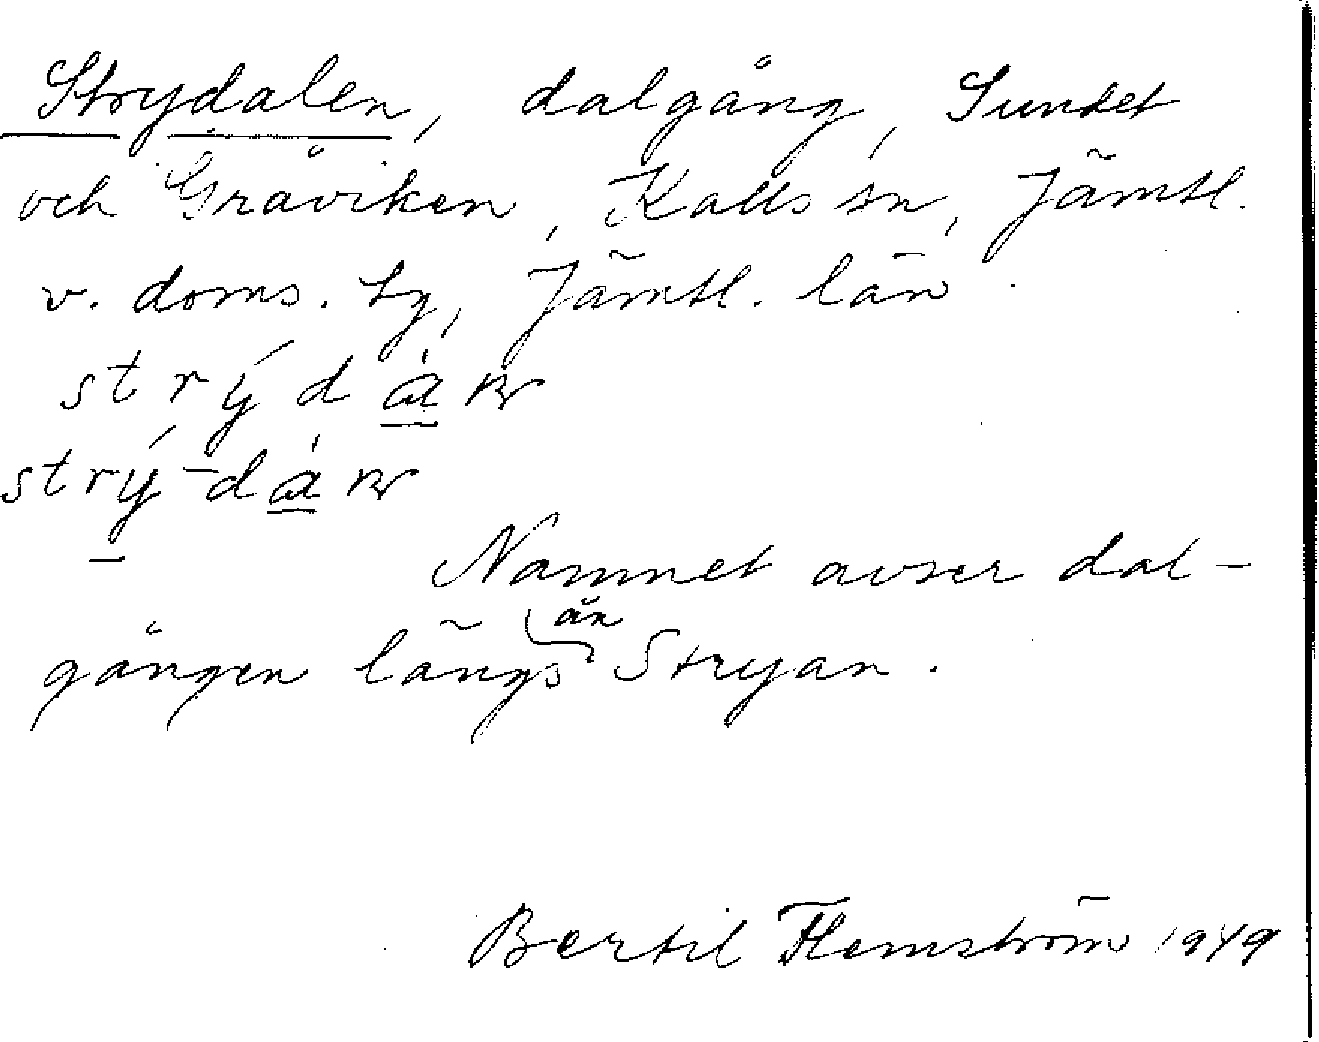 Strydalen, dalgång, Sundet
och Gråviken, Kalls sn, Jämtl.
v. doms. tg, Jämtl. län.
Namnet avser dal-
gången längs ån Stryan.
Bertil Flemström 1949